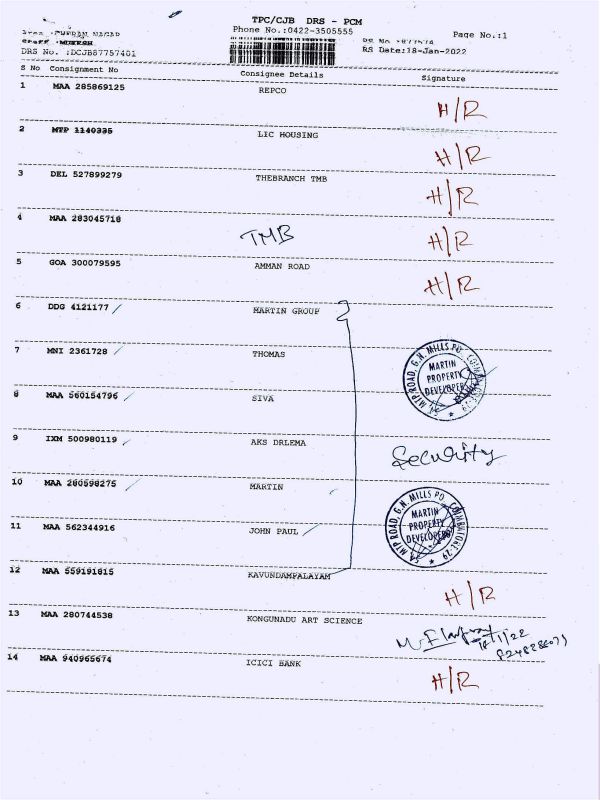 TPC/CJB DRS - PCM
Phone No.:0422-3505555
Page No.:1
DRS No. :DCJB87757401
RS Date:18-Jan-2022
S No Consignment No Consignee Details Signature
1 MAA 285869125 REPCO H/R
2 MTP 1140335 LIC HOUSING H/R
3 DEL 527899279 THEBRANCH TMB H/R
4 MAA 283045718 TMB H/R
5 GOA 300079595 AMMAN ROAD H/R
6 DDG 4121177 MARTIN GROUP
7 MNI 2361728 THOMAS
MARTIN
PROPERTY
DEVELOPERS
8 MAA 560154796 SIVA
9 IXM 500980119 AKS DRLEMA
Security
10 MAA 280598275 MARTIN
MTP ROAD, G.N. MILLS PO
MARTIN
PROPERTY
DEVELOPERS
11 MAA 562344916 JOHN PAUL
12 MAA 559191815 KAVUNDAMPALAYAM H/R
13 MAA 280744538 KONGUNADU ART SCIENCE
14 MAA 940965674 ICICI BANK H/R